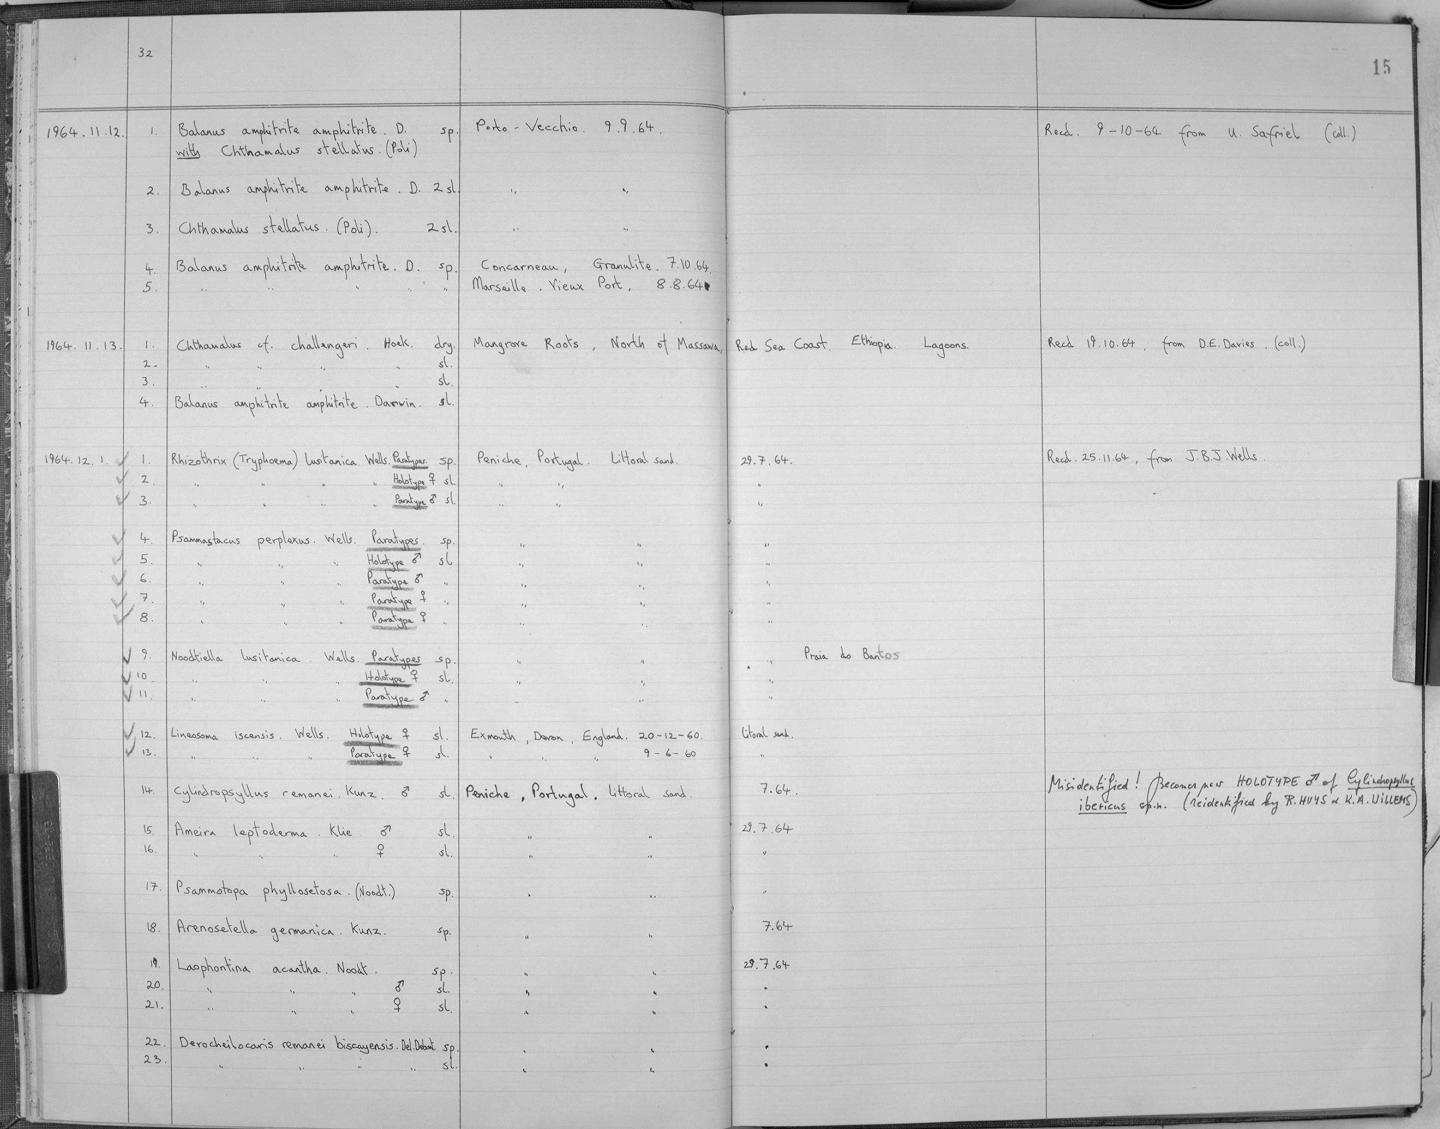 32
15
1964.11.12. 1. Balanus amphitrite amphitrite. D. sp. Porto-Vecchio. 9.9.64. Recd. 9-10-64 from U. Safriel (coll.)
with Chthamalus stellatus. (Poli)
2. Balanus amphitrite amphitrite. D. 2 sl. " "
3. Chthamalus stellatus. (Poli). 2 sl. " "
4. Balanus amphitrite amphitrite. D. sp. Concarneau, Granulite. 7.10.64.
5. " " " " " Marseille. Vieux Port, 8.8.64
1964.11.13. 1. Chthamalus cf. challengeri. Hoek. dry. Mangrove Roots, North of Massawa, Red Sea Coast. Ethiopia. Lagoons. Recd 19.10.64, from D.E. Davies. (coll.)
2. " " " " sl.
3. " " " " sl.
4. Balanus amphitrite amphitrite. Darwin. sl.
1964.12.1. 1. Rhizothrix (Tryphoema) lusitanica Wells. Paratypes sp. Peniche, Portugal. Littoral sand. 29.7.64. Recd. 25.11.64, from J.B.J. Wells.
2. " " " " Holotype ♀ sl. " " "
3. " " " " Paratype ♂ sl. " " "
4. Psammastacus perplexus. Wells. Paratypes. sp. " " "
5. " " " Holotype ♂ sl " " "
6. " " " Paratype ♂ " " " "
7. " " " Paratype ♀ " " " "
8. " " " Paratype ♀ " " " "
9. Noodtiella lusitanica. Wells. Paratypes sp. " " " Praia do Bantos
10 " " " Holotype ♀ sl. " " "
11. " " " Paratype ♂ " " " "
12. Lineosoma iscensis. Wells. Holotype ♀ sl. Exmouth, Devon, England. 20-12-60. Litoral sand.
13. " " " Paratype ♀ sl. " " " 9-6-60 "
14. Cylindropsyllus remanei. Kunz. ♂ sl. Peniche, Portugal. Littoral sand. 7.64. Misidentified! Becomes now HOLOTYPE ♂ of Cylindropsyllus
ibericus sp.n. (reidentified by R. HUYS & K.A. WILLEMS)
15. Ameira leptoderma. Klie ♂ sl. " " 29.7.64
16. " " " ♀ sl. " " "
17. Psammotopa phyllosetosa. (Noodt.) sp. " " "
18. Arenosetella germanica. Kunz. sp. " " 7.64
19. Laophontina acantha. Noodt. sp. " " 29.7.64
20. " " " ♂ sl. " " "
21. " " " ♀ sl. " " "
22. Derocheilocaris remanei biscayensis. Del. Debout sp. " " "
23. " " " " sl. " " "